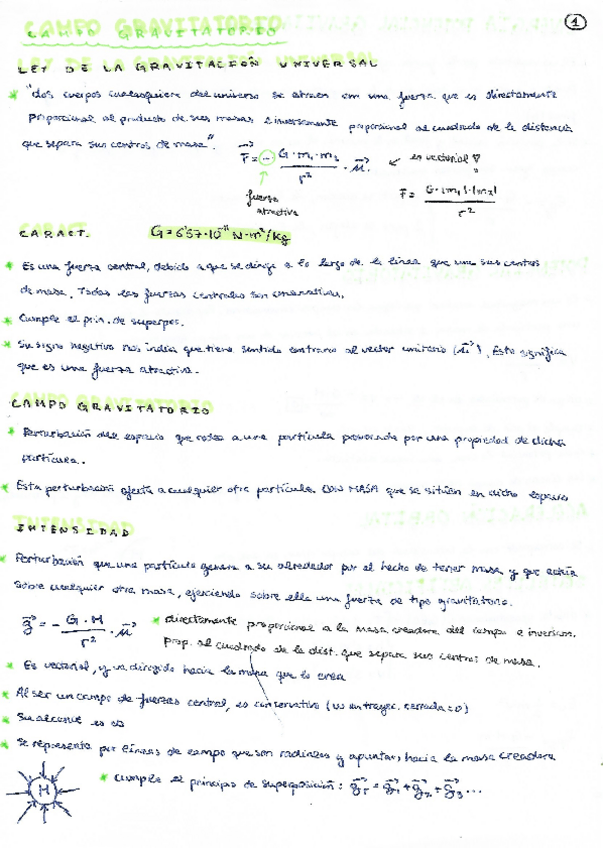 1
CAMPO GRAVITATORIO
LEY DE LA GRAVITACIÓN UNIVERSAL
* "dos cuerpos cualesquiera del universo se atraen con una fuerza que es directamente
proporcional al producto de sus masas e inversamente proporcional al cuadrado de la distancia
que separa sus centros de masa".
F = - G·m₁·m₂ / r² · u. ← es vectorial
fuerza atractiva
F = G·|m₁|·|m₂| / r²
CARACT. G = 6'67·10⁻¹¹ N·m²/kg
* Es una fuerza central, debido a que se dirige a lo largo de la línea que une sus centros
de masa. Todas las fuerzas centrales son conservativas.
* Cumple el prin. de superpos.
* Su signo negativo nos indica que tiene sentido contrario al vector unitario (u). Esto significa
que es una fuerza atractiva.
CAMPO GRAVITATORIO
* Perturbación del espacio que rodea a una partícula provocada por una propiedad de dicha
partícula.
* Esta perturbación afecta a cualquier otra partícula CON MASA que se sitúan en dicho espacio
INTENSIDAD
* Perturbación que una partícula genera a su alrededor por el hecho de tener masa y que actúa
sobre cualquier otra masa, ejerciendo sobre ella una fuerza de tipo gravitatorio.
g = - G·M / r² · u * directamente proporcional a la masa creadora del campo e inversam.
prop. al cuadrado de la dist. que separa sus centros de masa.
* Es vectorial, y va dirigido hacia la masa que lo crea
* Al ser un campo de fuerzas central, es conservativo (W en trayec. cerrada = 0)
* Su alcance es ∞
* Se representa por líneas de campo que son radiales y apuntan hacia la masa creadora
M
* cumple el principio de superposición: g_T = g₁ + g₂ + g₃ ...